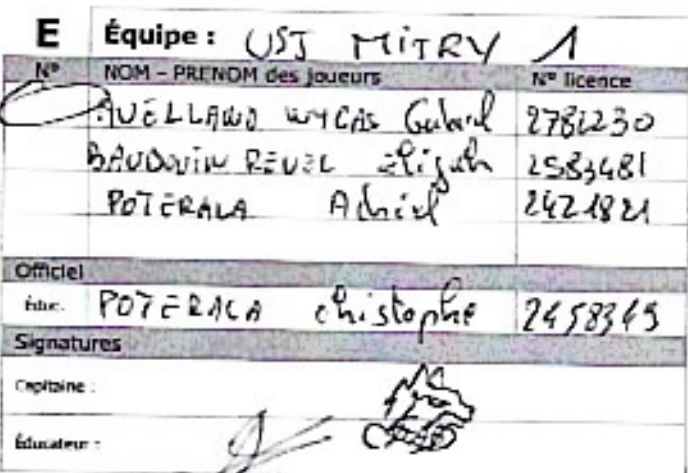 E Équipe : USJ MITRY 1
N° NOM - PRENOM des joueurs N° licence
AVELLANO WYCAS 2782230
BAUDOUIN REVEL 2583481
POTERALA 2421821
Officiel
Éduc. POTERALA christophe 2458349
Signatures
Capitaine :
Éducateur :